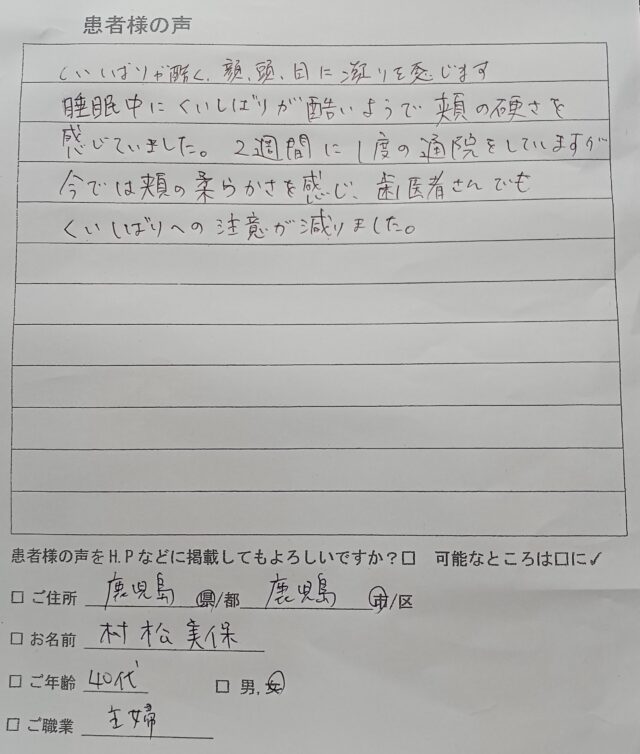 患者様の声
くいしばりが酷く、顔、頭、目に凝りを感じます
睡眠中にくいしばりが酷いようで頬の硬さを
感じていました。2週間に1度の通院をしていますが
今では頬の柔らかさを感じ、歯医者さんでも
くいしばりへの注意が減りました。
患者様の声をH.Pなどに掲載してもよろしいですか?□ 可能なところは□に✓
□ ご住所 鹿児島 県/都 鹿児島 市/区
□ お名前 村松美保
□ ご年齢 40代 □ 男,女
□ ご職業 主婦